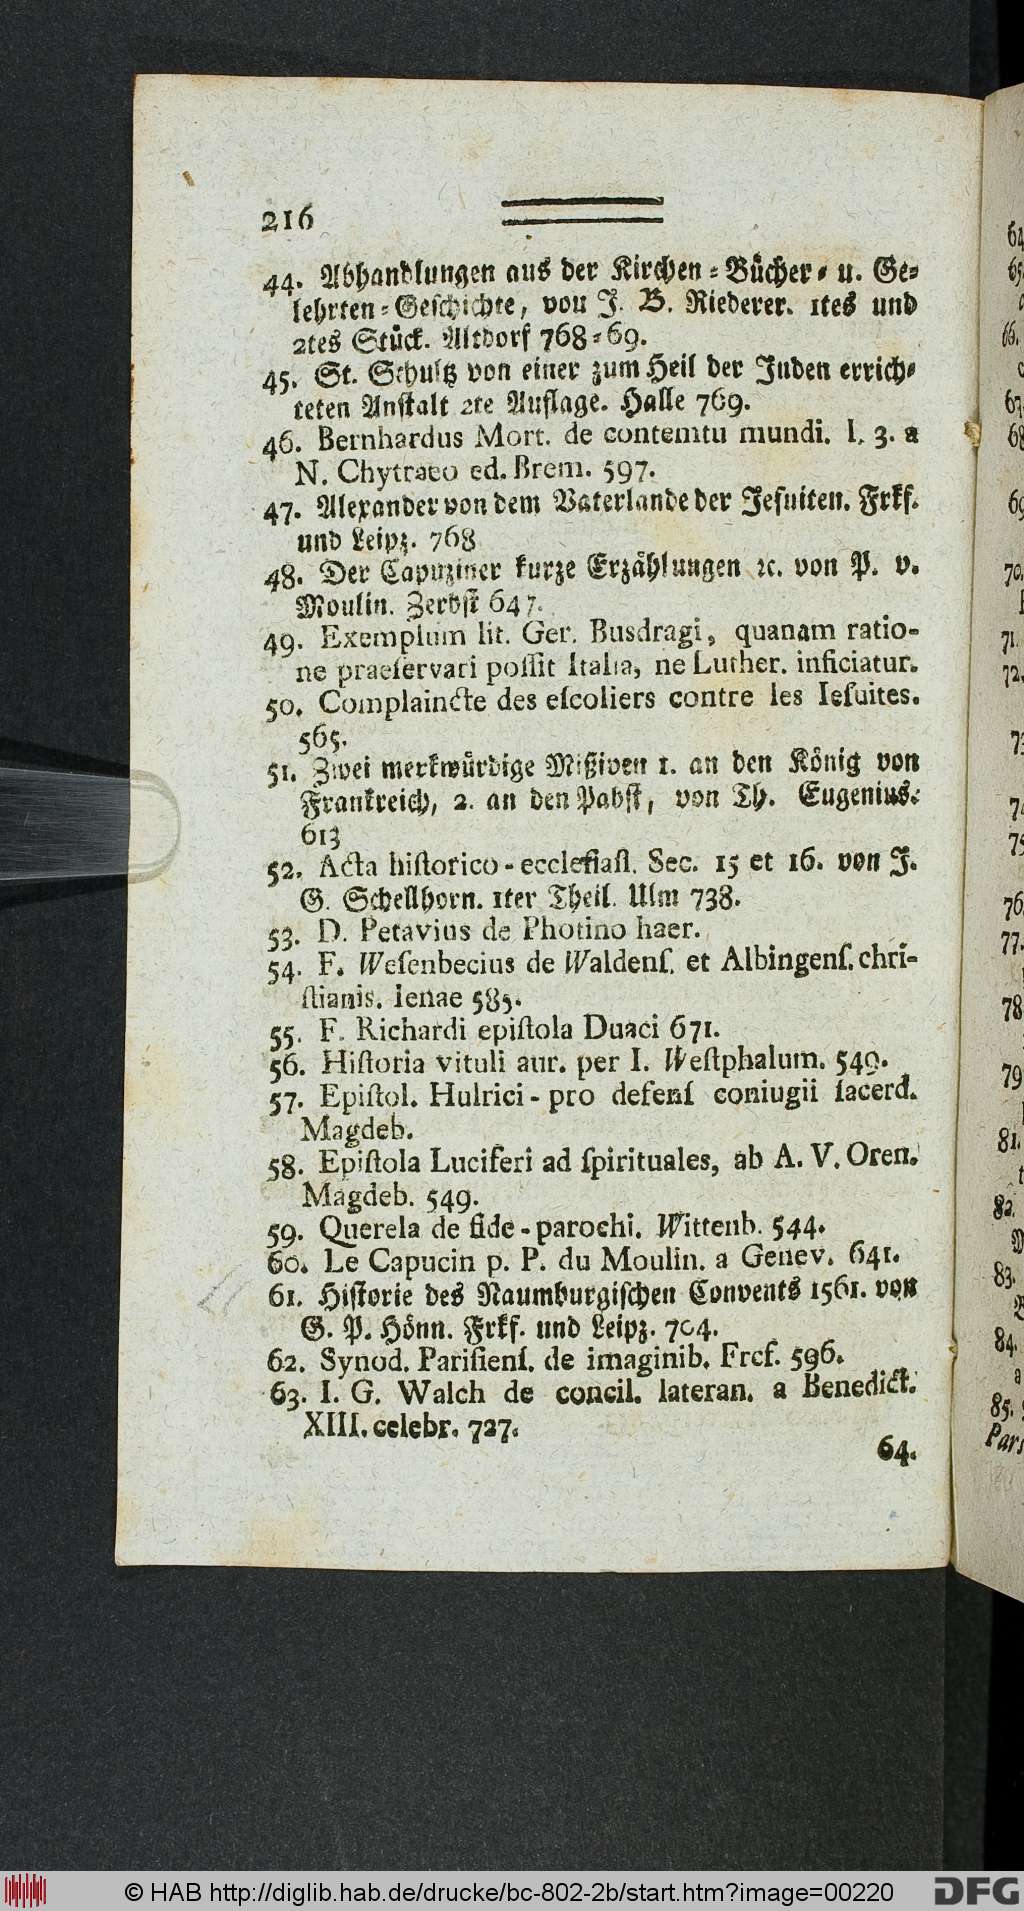 216
44. Abhandlungen aus der Kirchen-Bücher- u. Ge-
lehrten-Geschichte, von J. B. Riederer. 1tes und
2tes Stück. Altdorf 768-69.
45. St. Schultz von einer zum Heil der Juden errich-
teten Anstalt 2te Auflage. Halle 769.
46. Bernhardus Mort. de contemtu mundi. l. 3. a
N. Chytraeo ed. Brem. 597.
47. Alexander von dem Vaterlande der Jesuiten. Frkf.
und Leipz. 768
48. Der Capuziner kurze Erzählungen ꝛc. von P. v.
Moulin. Zerbst 647.
49. Exemplum lit. Ger. Busdragi, quanam ratio-
ne praeſervari poſſit Italia, ne Luther. inficiatur.
50. Complaincte des eſcoliers contre les Ieſuites.
565.
51. Zwei merkwürdige Mißiven 1. an den König von
Frankreich, 2. an den Pabst, von Th. Eugenius.
613
52. Acta hiſtorico-eccleſiaſt. Sec. 15 et 16. von J.
G. Schellhorn. 1ter Theil. Ulm 738.
53. D. Petavius de Photino haer.
54. F. Weſenbecius de Waldenſ. et Albingenſ. chri-
ſtianis. Ienae 585.
55. F. Richardi epiſtola Duaci 671.
56. Hiſtoria vituli aur. per I. Weſtphalum. 549.
57. Epiſtol. Hulrici-pro defenſ coniugii ſacerd.
Magdeb.
58. Epiſtola Luciferi ad ſpirituales, ab A. V. Oren.
Magdeb. 549.
59. Querela de fide-parochi. Wittenb. 544.
60. Le Capucin p. P. du Moulin. a Genev. 641.
61. Historie des Naumburgischen Convents 1561. von
G. P. Hönn. Frkf. und Leipz. 704.
62. Synod. Pariſienſ. de imaginib. Frcf. 596.
63. I. G. Walch de concil. lateran. a Benedict.
XIII. celebr. 727.
64.
© HAB http://diglib.hab.de/drucke/bc-802-2b/start.htm?image=00220
DFG